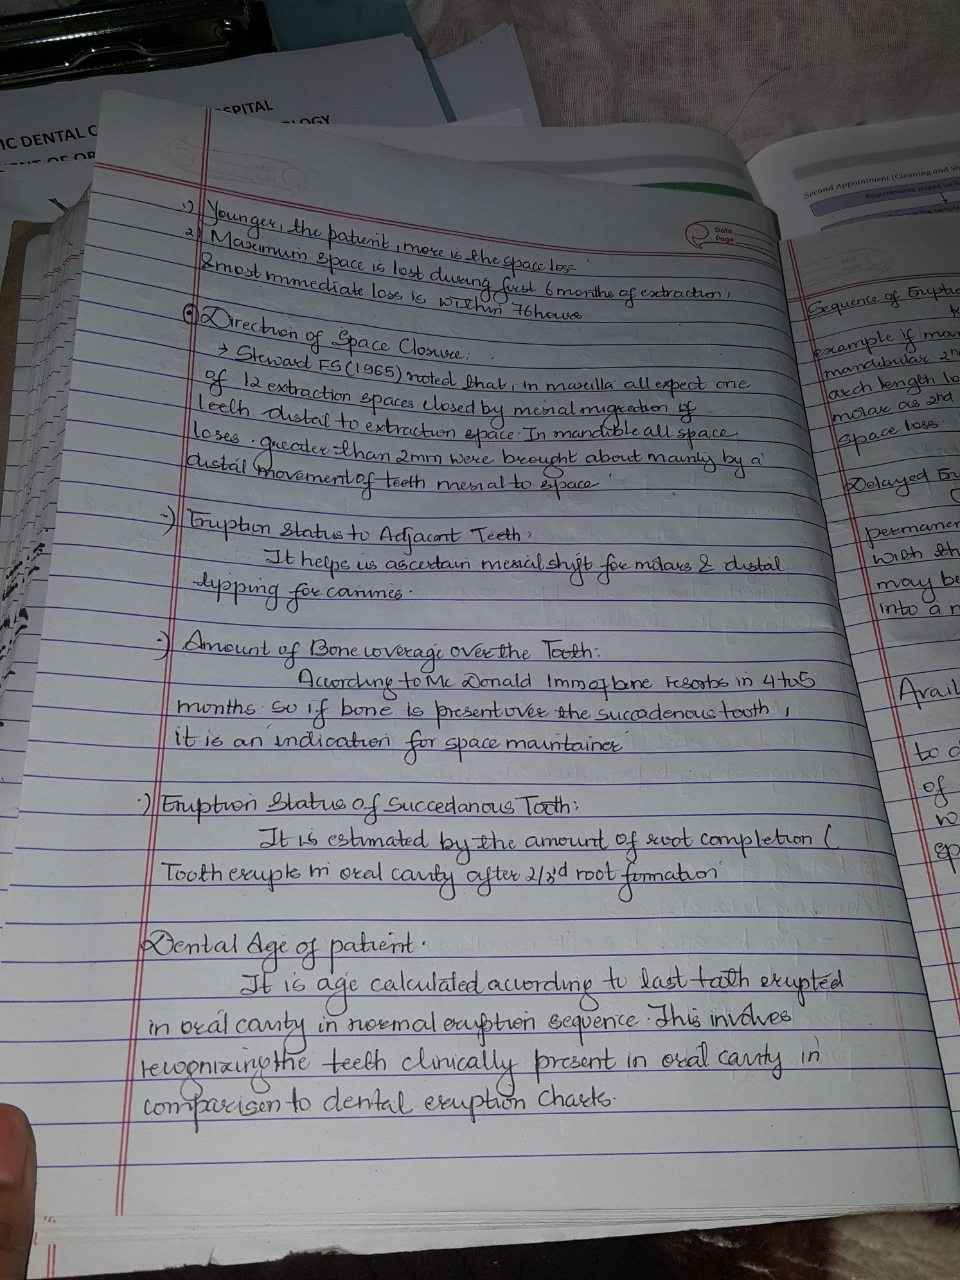 SPITAL
IC DENTAL C
OLOGY
Second Appointment (Cleaning and Sh
Appointments should be
Date
Page
1) Younger, the patient, more is the space lose
2) Maximum space is lost during first 6 months of extraction,
& most mmediate loss is within 76 hours
Direction of Space Closure:
→ Steward FS (1965) noted that, in maxilla all expect one
of 12 extraction spaces closed by mesial migration of
teeth distal to extraction space. In mandible all space
loses. greater than 2mm were brought about mainly by a
distal movement of teeth mesial to space
Eruption Status to Adjacant Teeth:
It helps us ascertain mesial shift for molars & distal
tipping for canines.
Amount of Bone coverage over the Tooth:
According to Mc Donald 1mm of bone resorbs in 4 to 5
months. so if bone is present over the succadenous tooth,
it is an indication for space maintainer
Eruption Status of Succedanous Tooth:
It is estimated by the amount of root completion (
Tooth erupts in oral cavity after 2/3rd root formation
Dental Age of patient.
It is age calculated according to last tooth erupted
in oral cavity in normal eruption sequence. This involves
recognizing the teeth clinically present in oral cavity in
comparison to dental eruption Charts.
Sequence of Erupti
example if man
mandibular 2n
arch length lo
molar as 2nd
space loss.
Delayed Er
permaner
with th
may be
into a n
Avail
to c
of
sp